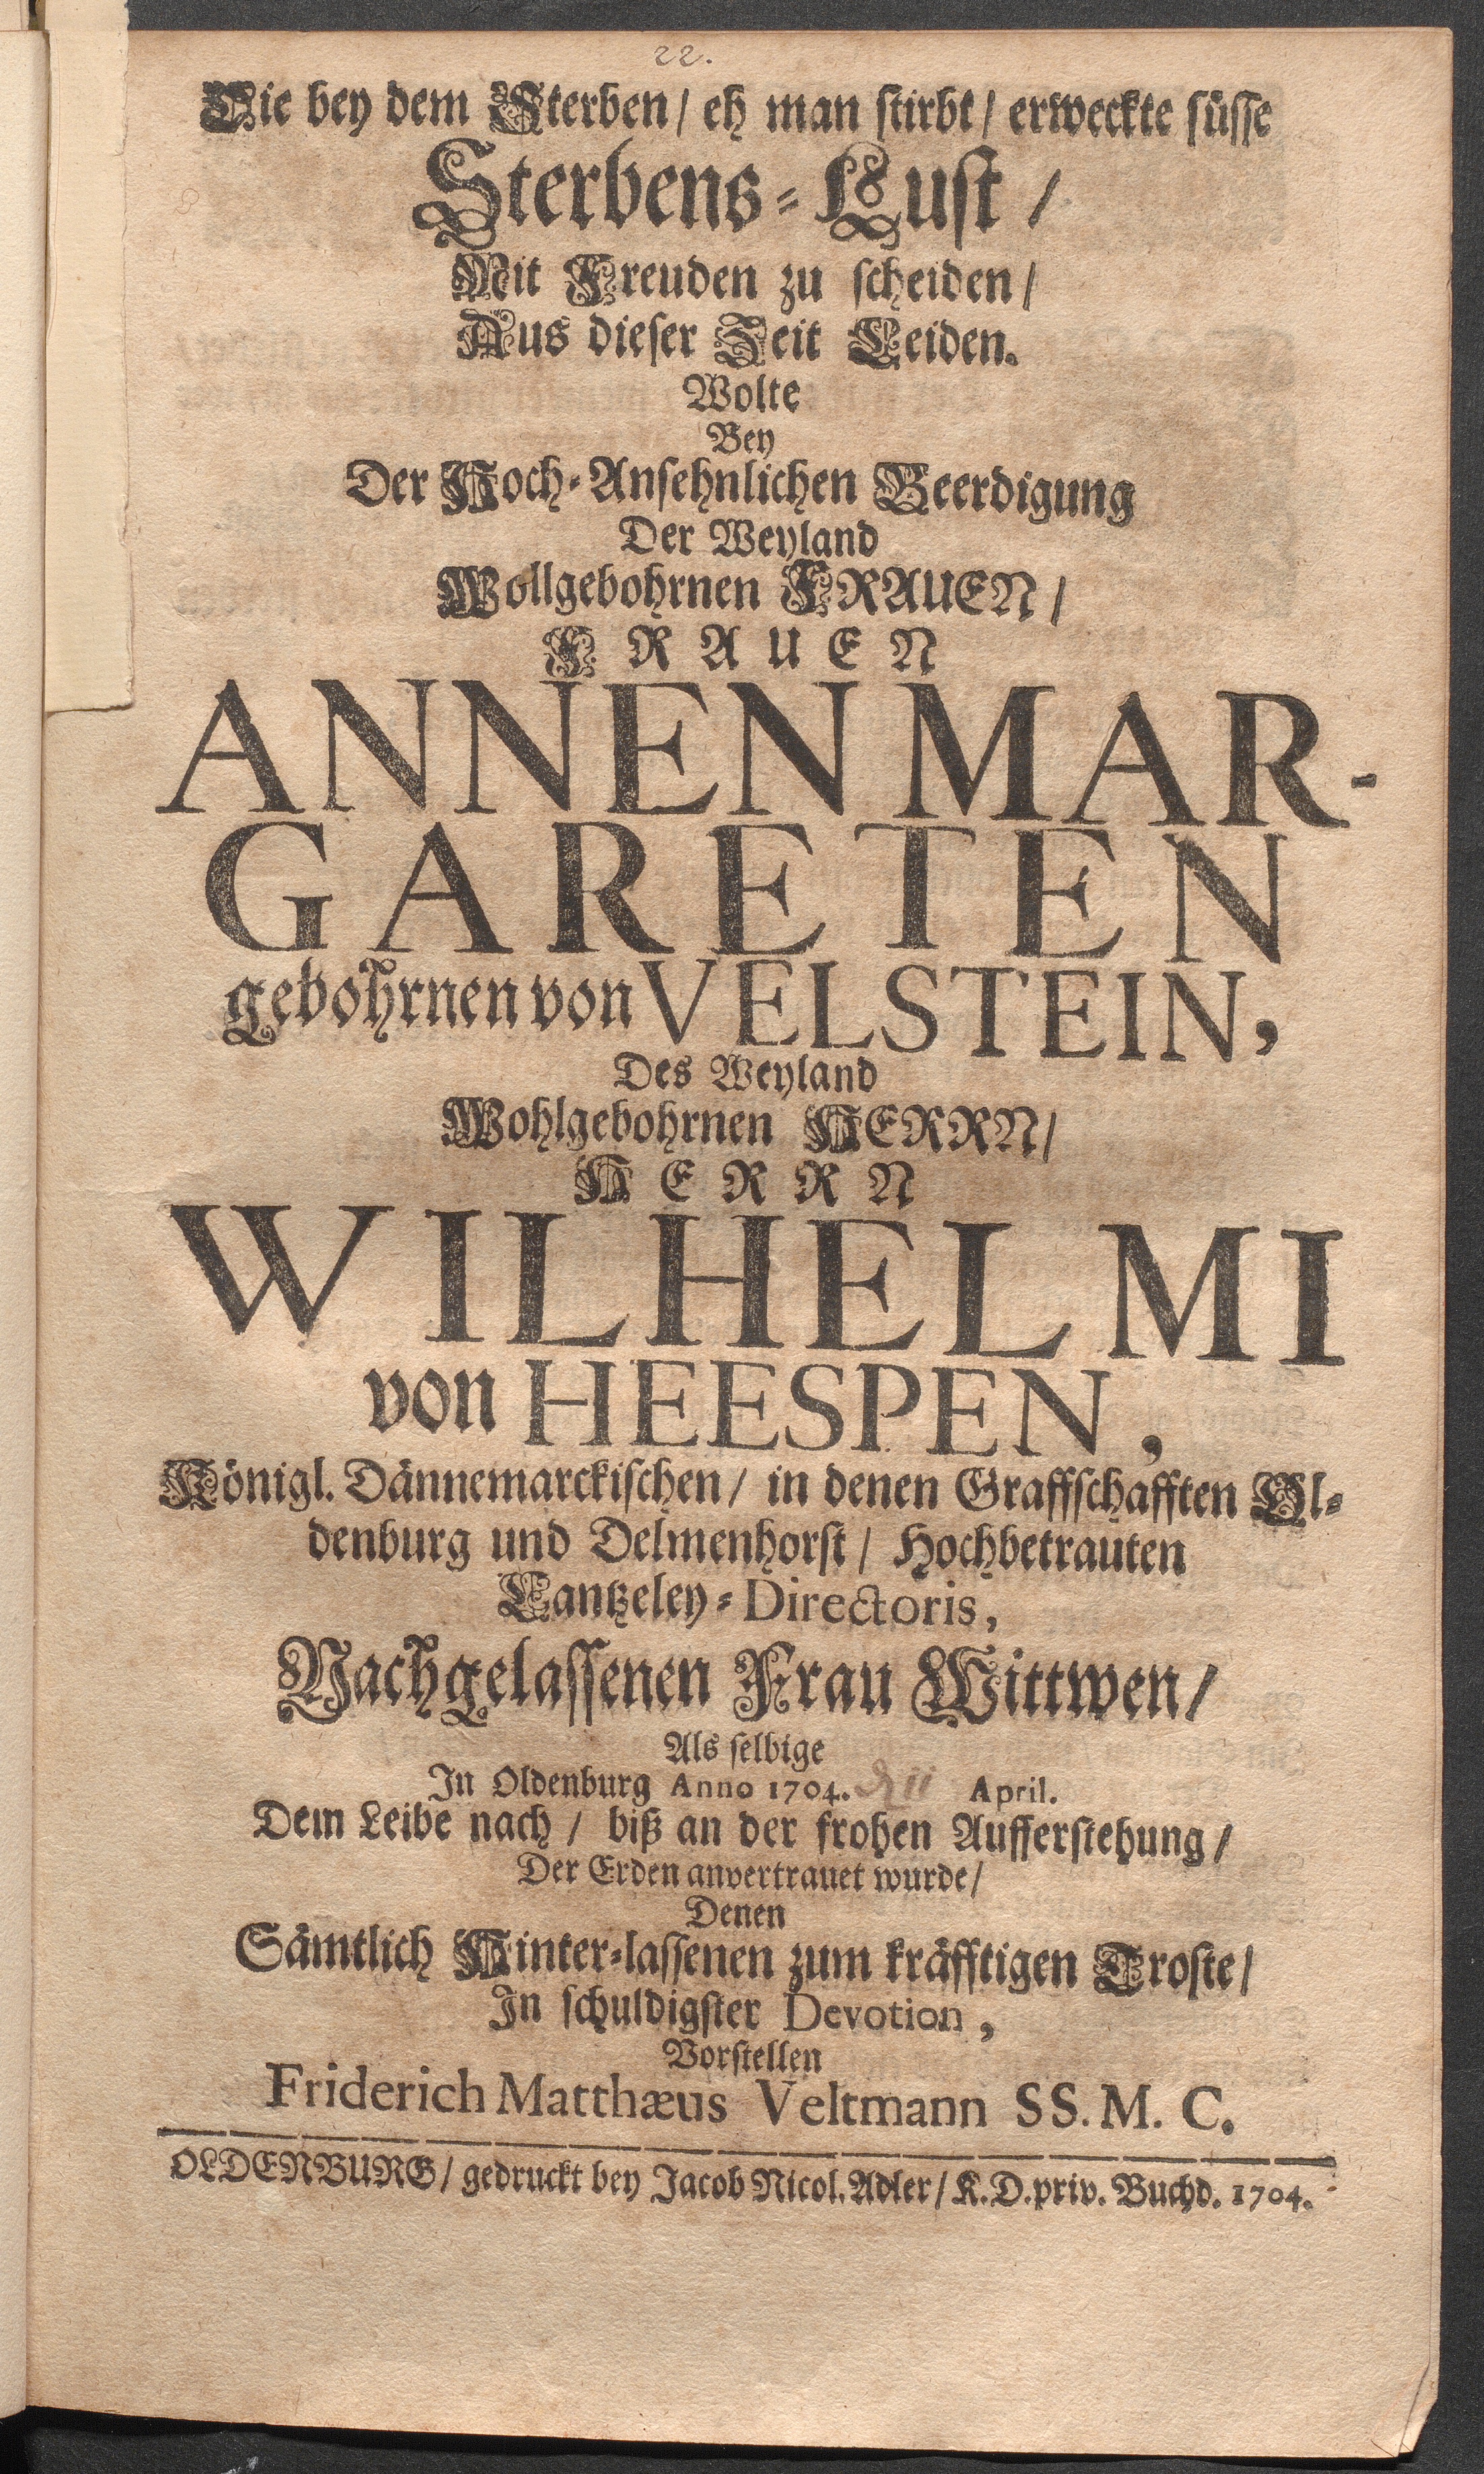 22.
Die bey dem Sterben/ eh man stirbt/ erweckte süsse
Sterbens-Lust/
Mit Freuden zu scheiden/
Aus dieser Zeit Leiden.
Wolte
Bey
Der Hoch-Ansehnlichen Beerdigung
Der Weyland
Wollgebohrnen FRAUEN/
FRAUEN
ANNEN MAR-
GARETEN
gebohrnen von VELSTEIN,
Des Weyland
Wohlgebohrnen HERRN/
HERRN
WILHELMI
von HEESPEN,
Königl. Dännemarckischen/ in denen Graffschafften Ol-
denburg und Delmenhorst/ Hochbetrauten
Cantzeley-Directoris,
Nachgelassenen Frau Wittwen/
Als selbige
In Oldenburg Anno 1704. April.
Dem Leibe nach/ biß an der frohen Aufferstehung/
Der Erden anvertrauet wurde/
Denen
Sämtlich Hinter-lassenen zum kräfftigen Troste/
In schuldigster Devotion,
Vorstellen
Friderich Matthæus Veltmann SS. M. C.
OLDENBURG/ gedruckt bey Jacob Nicol. Adler/ K. D. priv. Buchd. 1704.